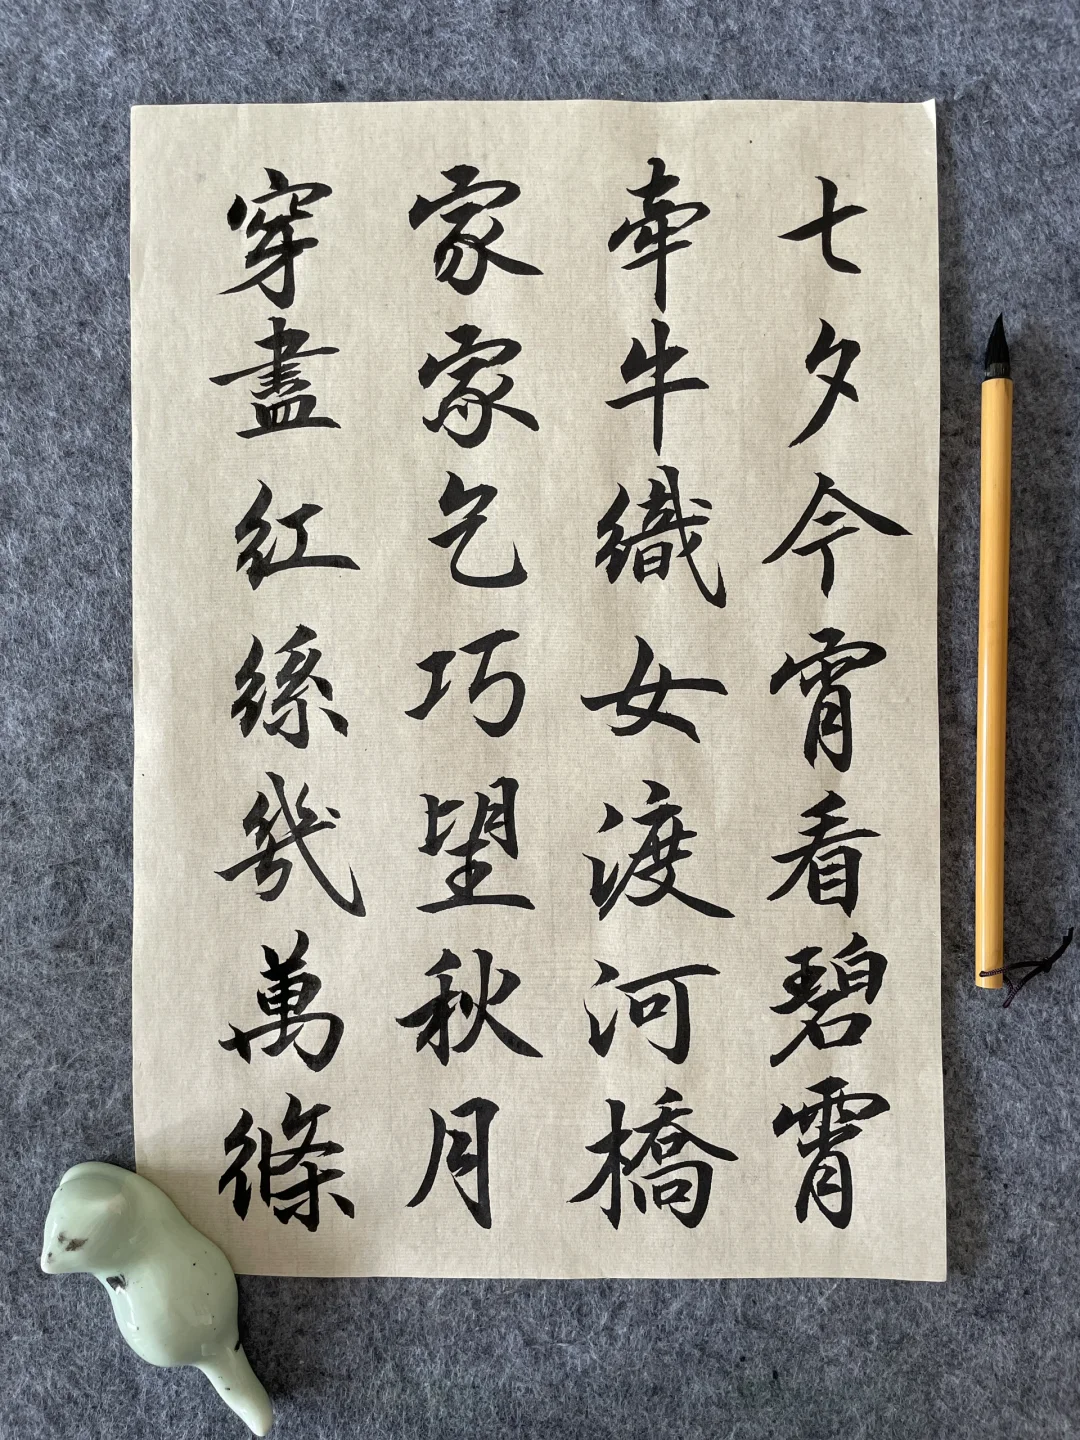 七夕今霄看碧霄
牽牛織女渡河橋
家家乞巧望秋月
穿盡紅絲幾萬條